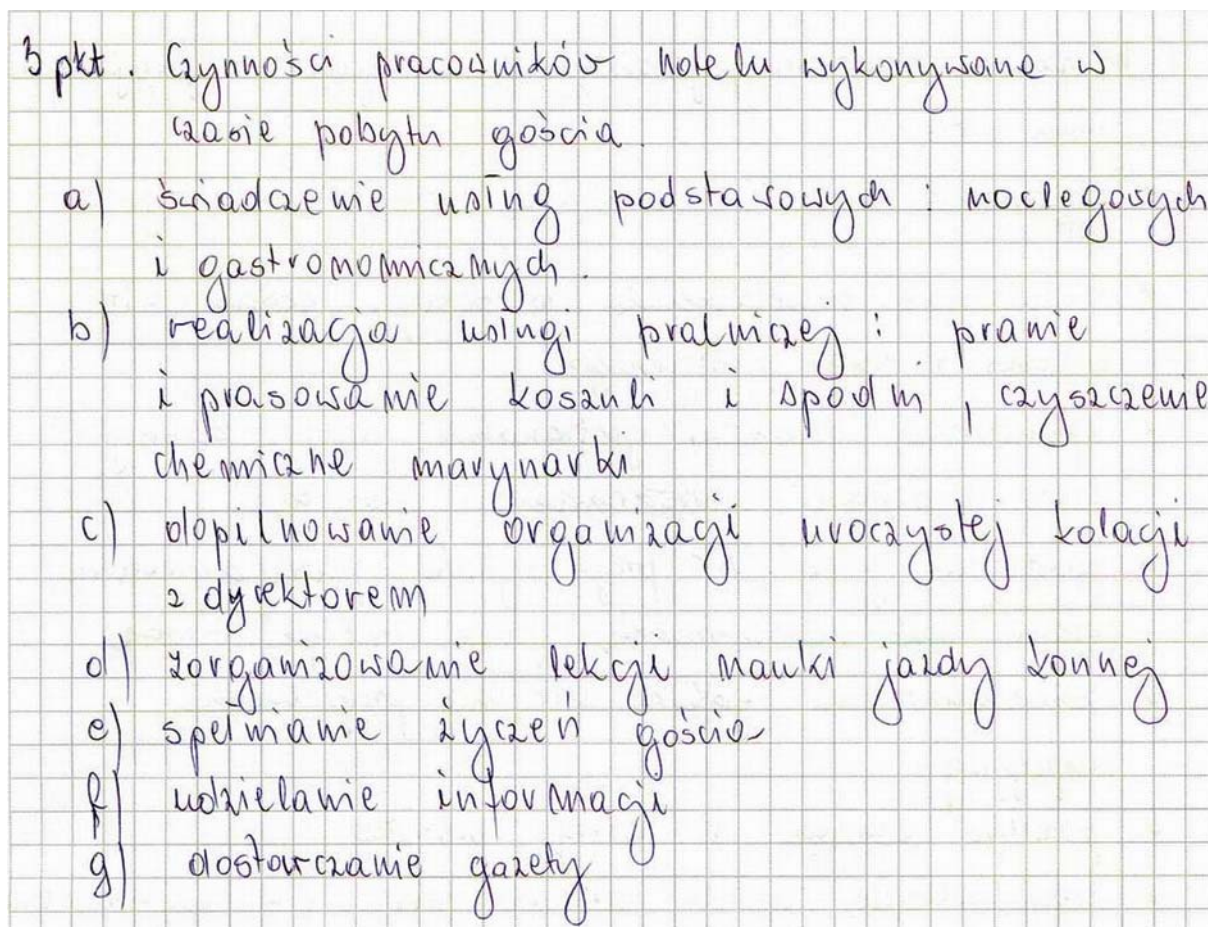 3 pkt. Czynności pracowników hotelu wykonywane w
czasie pobytu gościa.
a) świadczenie usług podstawowych : noclegowych
i gastronomicznych.
b) realizacja usługi pralniczej : pranie
i prasowanie koszuli i spodni, czyszczenie
chemiczne marynarki
c) dopilnowanie organizacji uroczystej kolacji
z dyrektorem
d) zorganizowanie lekcji nauki jazdy konnej
e) spełnianie życzeń gościa
f) udzielanie informacji
g) dostarczanie gazety